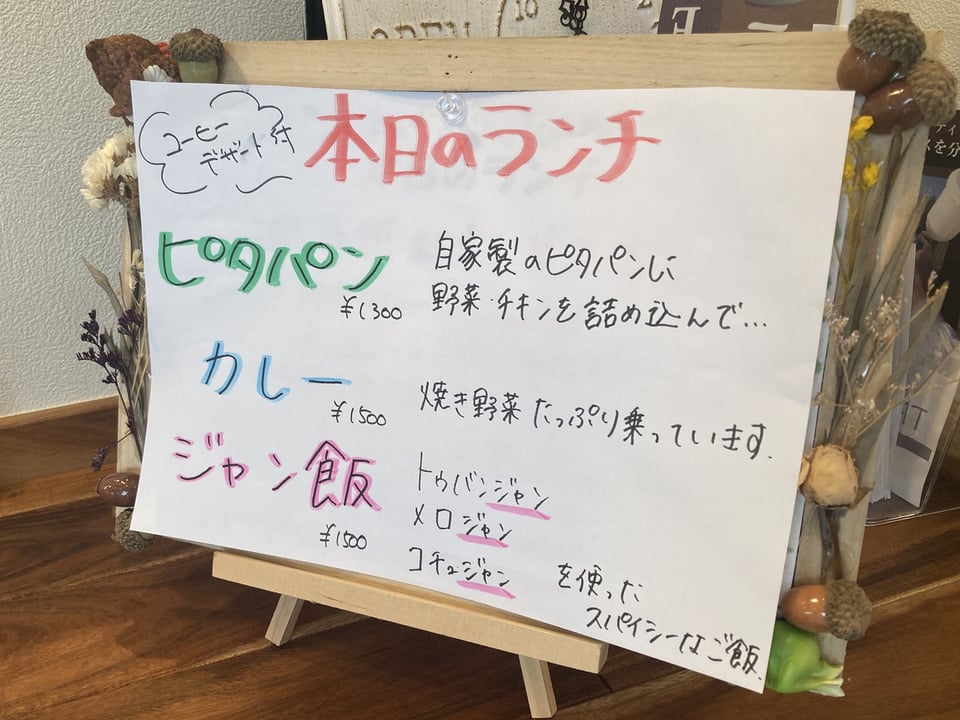 OPEN
10
コーヒー
デザート付
本日のランチ
ピタパン
¥1300
自家製のピタパンに
野菜・チキンを詰め込んで...
カレー
¥1500
焼き野菜たっぷり乗っています.
ジャン飯
¥1500
トゥバンジャン
メロジャン
コチュジャン を使った
スパイシーなご飯.
ティ
スを分